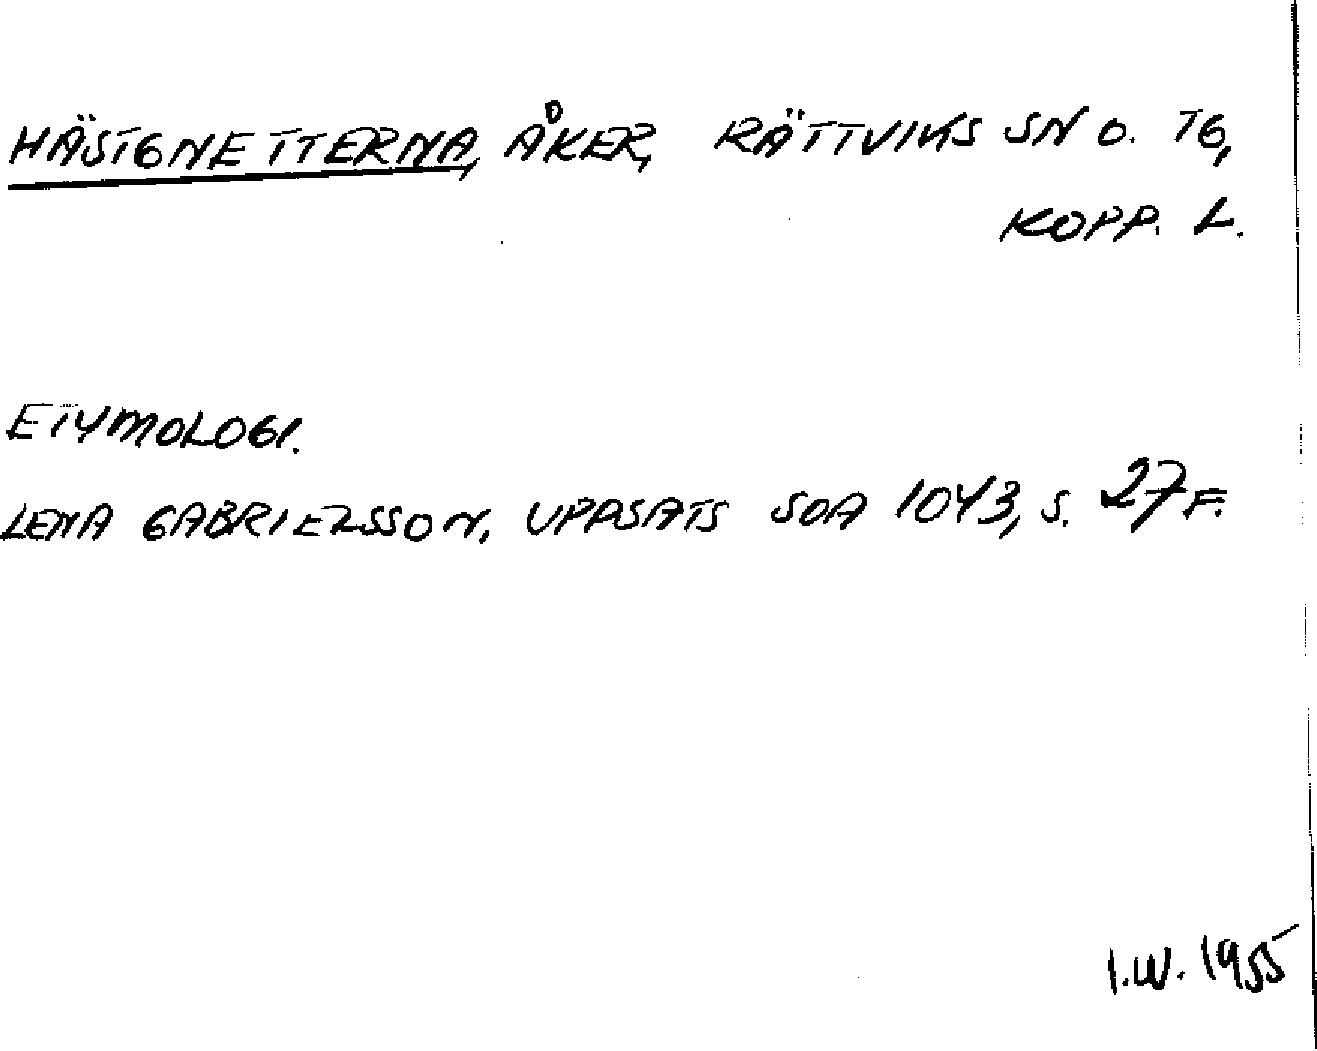 HÄSTGNETTERNA, ÅKER, RÄTTVIKS SN O. TG,
KOPP. L.
ETYMOLOGI.
LENA GABRIELSSON, UPPSATS SOA 1043, S. 27 F.
I.W. 1955